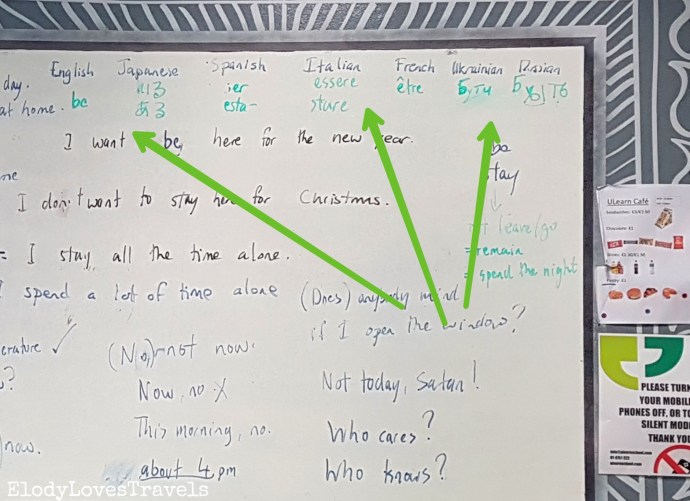 day. English Japanese Spanish Italian French Ukrainian Russian
at home. be いる ier essere être бути быть
ある esta- stare
I want be here for the new year.
be
stay
I don't want to stay here for Christmas.
leave/go
= I stay all the time alone.
= remain
= spend the night
I spend a lot of time alone
(Does) anybody mind
if I open the window?
erature ✓
(No,) not now.
?
Now, no X
Not today, Satan!
This morning, no.
Who cares?
now.
about 4 pm
Who knows?
ULearn Café
PLEASE TURN
YOUR MOBIL
PHONES OFF, OR TO
SILENT MOD
THANK YO
ElodyLovesTravels